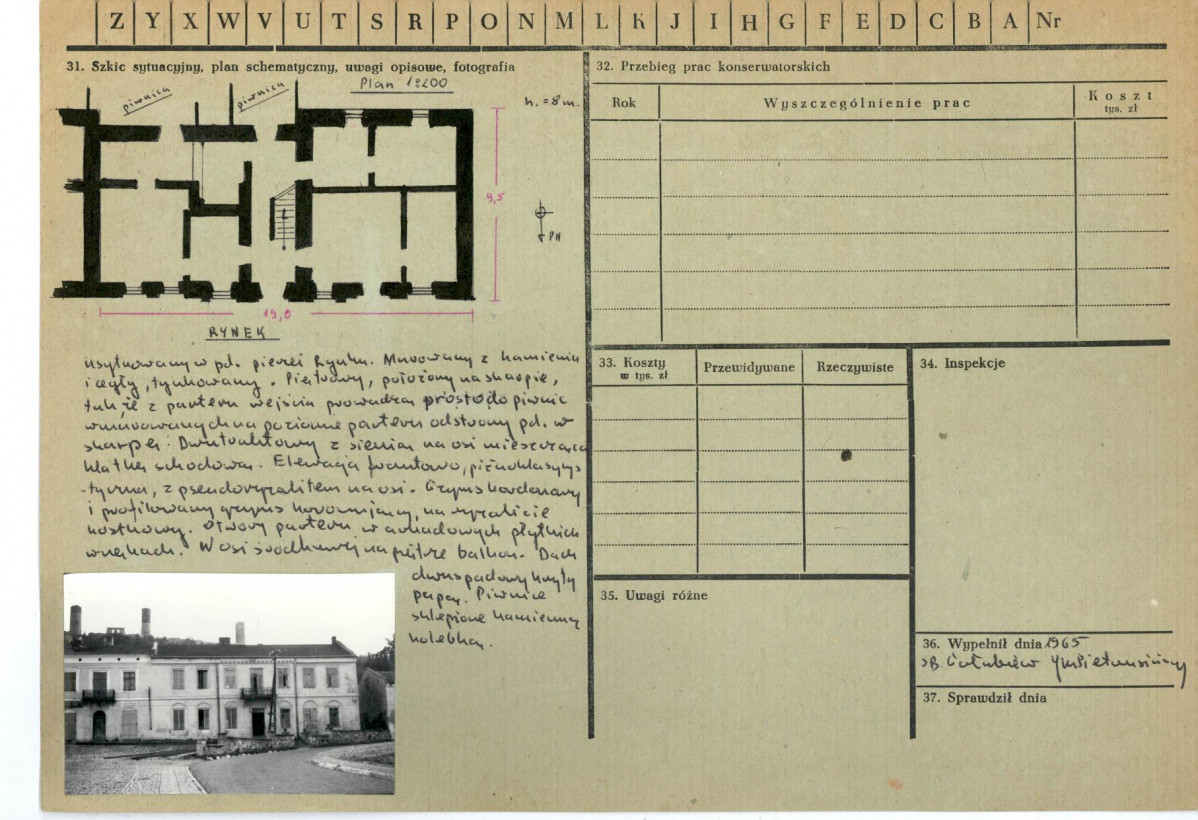 Z Y X W V U T S R P O N M L K J I H G F E D C B A Nr
31. Szkic sytuacyjny, plan schematyczny, uwagi opisowe, fotografia
Plan 1:200
piwnica
piwnica
h. = 8 m.
9,5
PN
19,0
RYNEK
usytuowany w pd. pierzei Rynku. Murowany z kamienia
i cegły, tynkowany. Piętrowy, położony na skarpie,
tak, że z parteru wejścia prowadzą prosto do piwnic
wmurowanych na poziomie parteru od strony pd. w
skarpę. Dwutraktowy z sienią na osi mieszczącą
klatkę schodową. Elewacja frontowa, późnoklasycys
-tyczna, z pseudoryzalitem na osi. Gzyms kordonowy
i profilowany gzyms koronujący, na ryzalicie
kostkowy. Otwory parteru w arkadowych płytkich
wnękach. W osi środkowej na piętrze balkon. Dach
dwuspadowy kryty
papą. Piwnice
sklepione kamienną
kolebką.
32. Przebieg prac konserwatorskich
Rok
Wyszczególnienie prac
Koszt
tys. zł
33. Koszty
w tys. zł
Przewidywane
Rzeczywiste
34. Inspekcje
35. Uwagi różne
36. Wypełnił dnia 1965
37. Sprawdził dnia